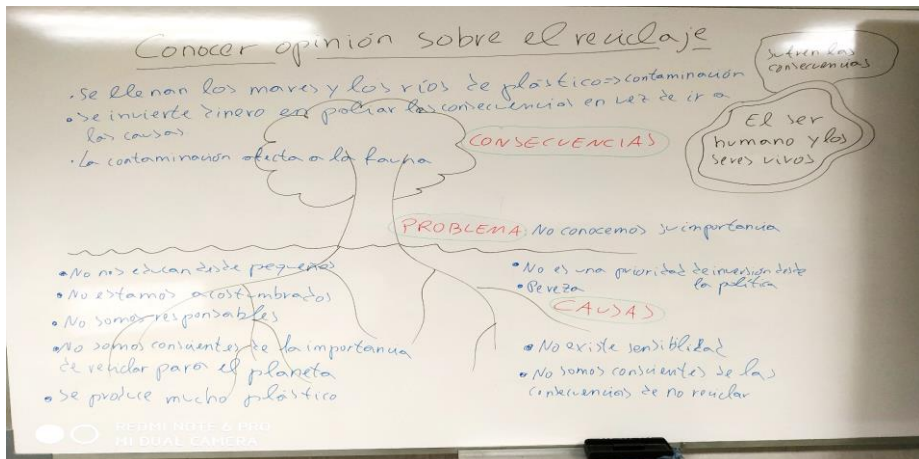 Conocer opinión sobre el reciclaje
sufren las
consecuencias
• Se llenan los mares y los ríos de plástico => contaminación
• Se invierte dinero en paliar las consecuencias en vez de ir a
las causas
• La contaminación afecta a la fauna
CONSECUENCIAS
El ser
humano y los
seres vivos
PROBLEMA No conocemos su importancia
• No nos educan desde pequeños
• No estamos acostumbrados
• No somos responsables
• No somos conscientes de la importancia
de reciclar para el planeta
• Se produce mucho plástico
• No es una prioridad de inversión desde
la política
• Pereza
CAUSAS
• No existe sensiblidad
• No somos conscientes de las
consecuencias de no reciclar
REDMI NOTE 8 PRO
MI DUAL CAMERA